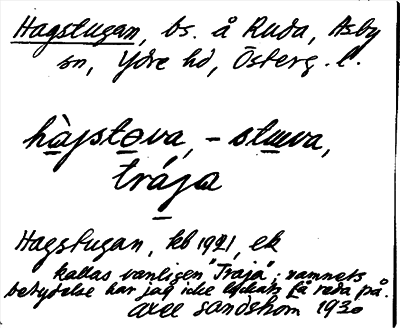 Hagstugan, bs. å Ruda, Asby
sn, Ydre hd, Österg. l.
hàjstəva, – stɯva,
trája
Hagstugan, kb 1921, ek
kallas vanligen "Traja"; namnets
betydelse har jag icke lyckats få reda på.
Axel Sandshom 1930